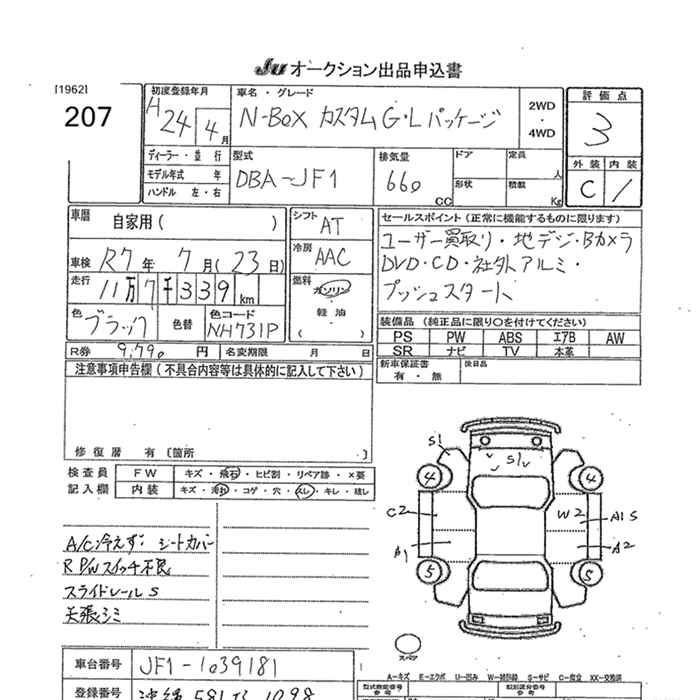 Ju オークション出品申込書
[1962]
207
初度登録年月
H24 4月
車名・グレード
N-BOX カスタム G・Lパッケージ
2WD
・
4WD
評価点
3
ディーラー・並行
モデル年式 年
ハンドル 左・右
型式
DBA-JF1
排気量
660 CC
ドア
定員 人
形状
積載 Kg
外装 内装
C /
車暦
自家用( )
シフト AT
セールスポイント(正常に機能するものに限ります)
ユーザー買取り・地デジ・Bカメラ
DVD・CD・社外アルミ・
プッシュスタート
車検 R7年 7月(23日)
冷房 AAC
走行 11万7千339km
燃料
ガソリン
軽油
( )
色 ブラック
色替
色コード
NH731P
装備品(純正品に限り○を付けてください)
PS PW ABS エアB AW
SR ナビ TV 本革
R券 9,790円
名変期限 月 日
新車保証書
有・無
後日品
注意事項申告欄(不具合内容等は具体的に記入して下さい)
修復暦 有〔箇所 〕
検査員
記入欄
FW キズ・飛石・ヒビ割・リペア跡・×要
内装 キズ・汚れ・コゲ・穴・スレ・キレ・残し
A/C冷えず; シートカバー
R P/Wスイッチ不良
スライドレールS
天張シミ
S1
S1
4
4
C2
W2
A1S
B1
A2
5
5
スペア
A-キズ E-エクボ U-凹み S-サビ C-腐立 XX-交換済
車台番号 JF1-1039181
登録番号
型式指定番号
類別区分番号